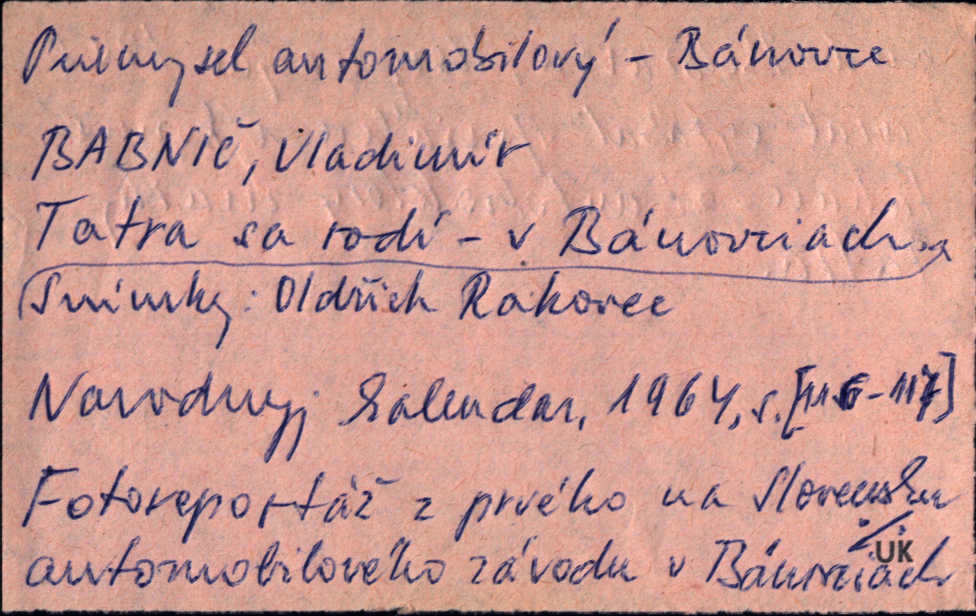 Priemysel automobilový - Bánovce
BABNIČ, Vladimír
Tatra sa rodí - v Bánovciach.
Snímky: Oldřich Rakovec
Narodnyj kalendar, 1964, s. [116-117]
Fotoreportáž z prvého na Slovensku
automobilového závodu v Bánovciach
UK